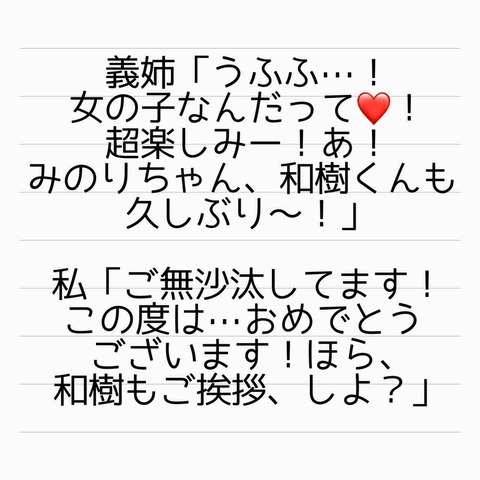 義姉「うふふ…！
女の子なんだって❤️！
超楽しみー！あ！
みのりちゃん、和樹くんも
久しぶり〜！」
私「ご無沙汰してます！
この度は…おめでとう
ございます！ほら、
和樹もご挨拶、しよ？」